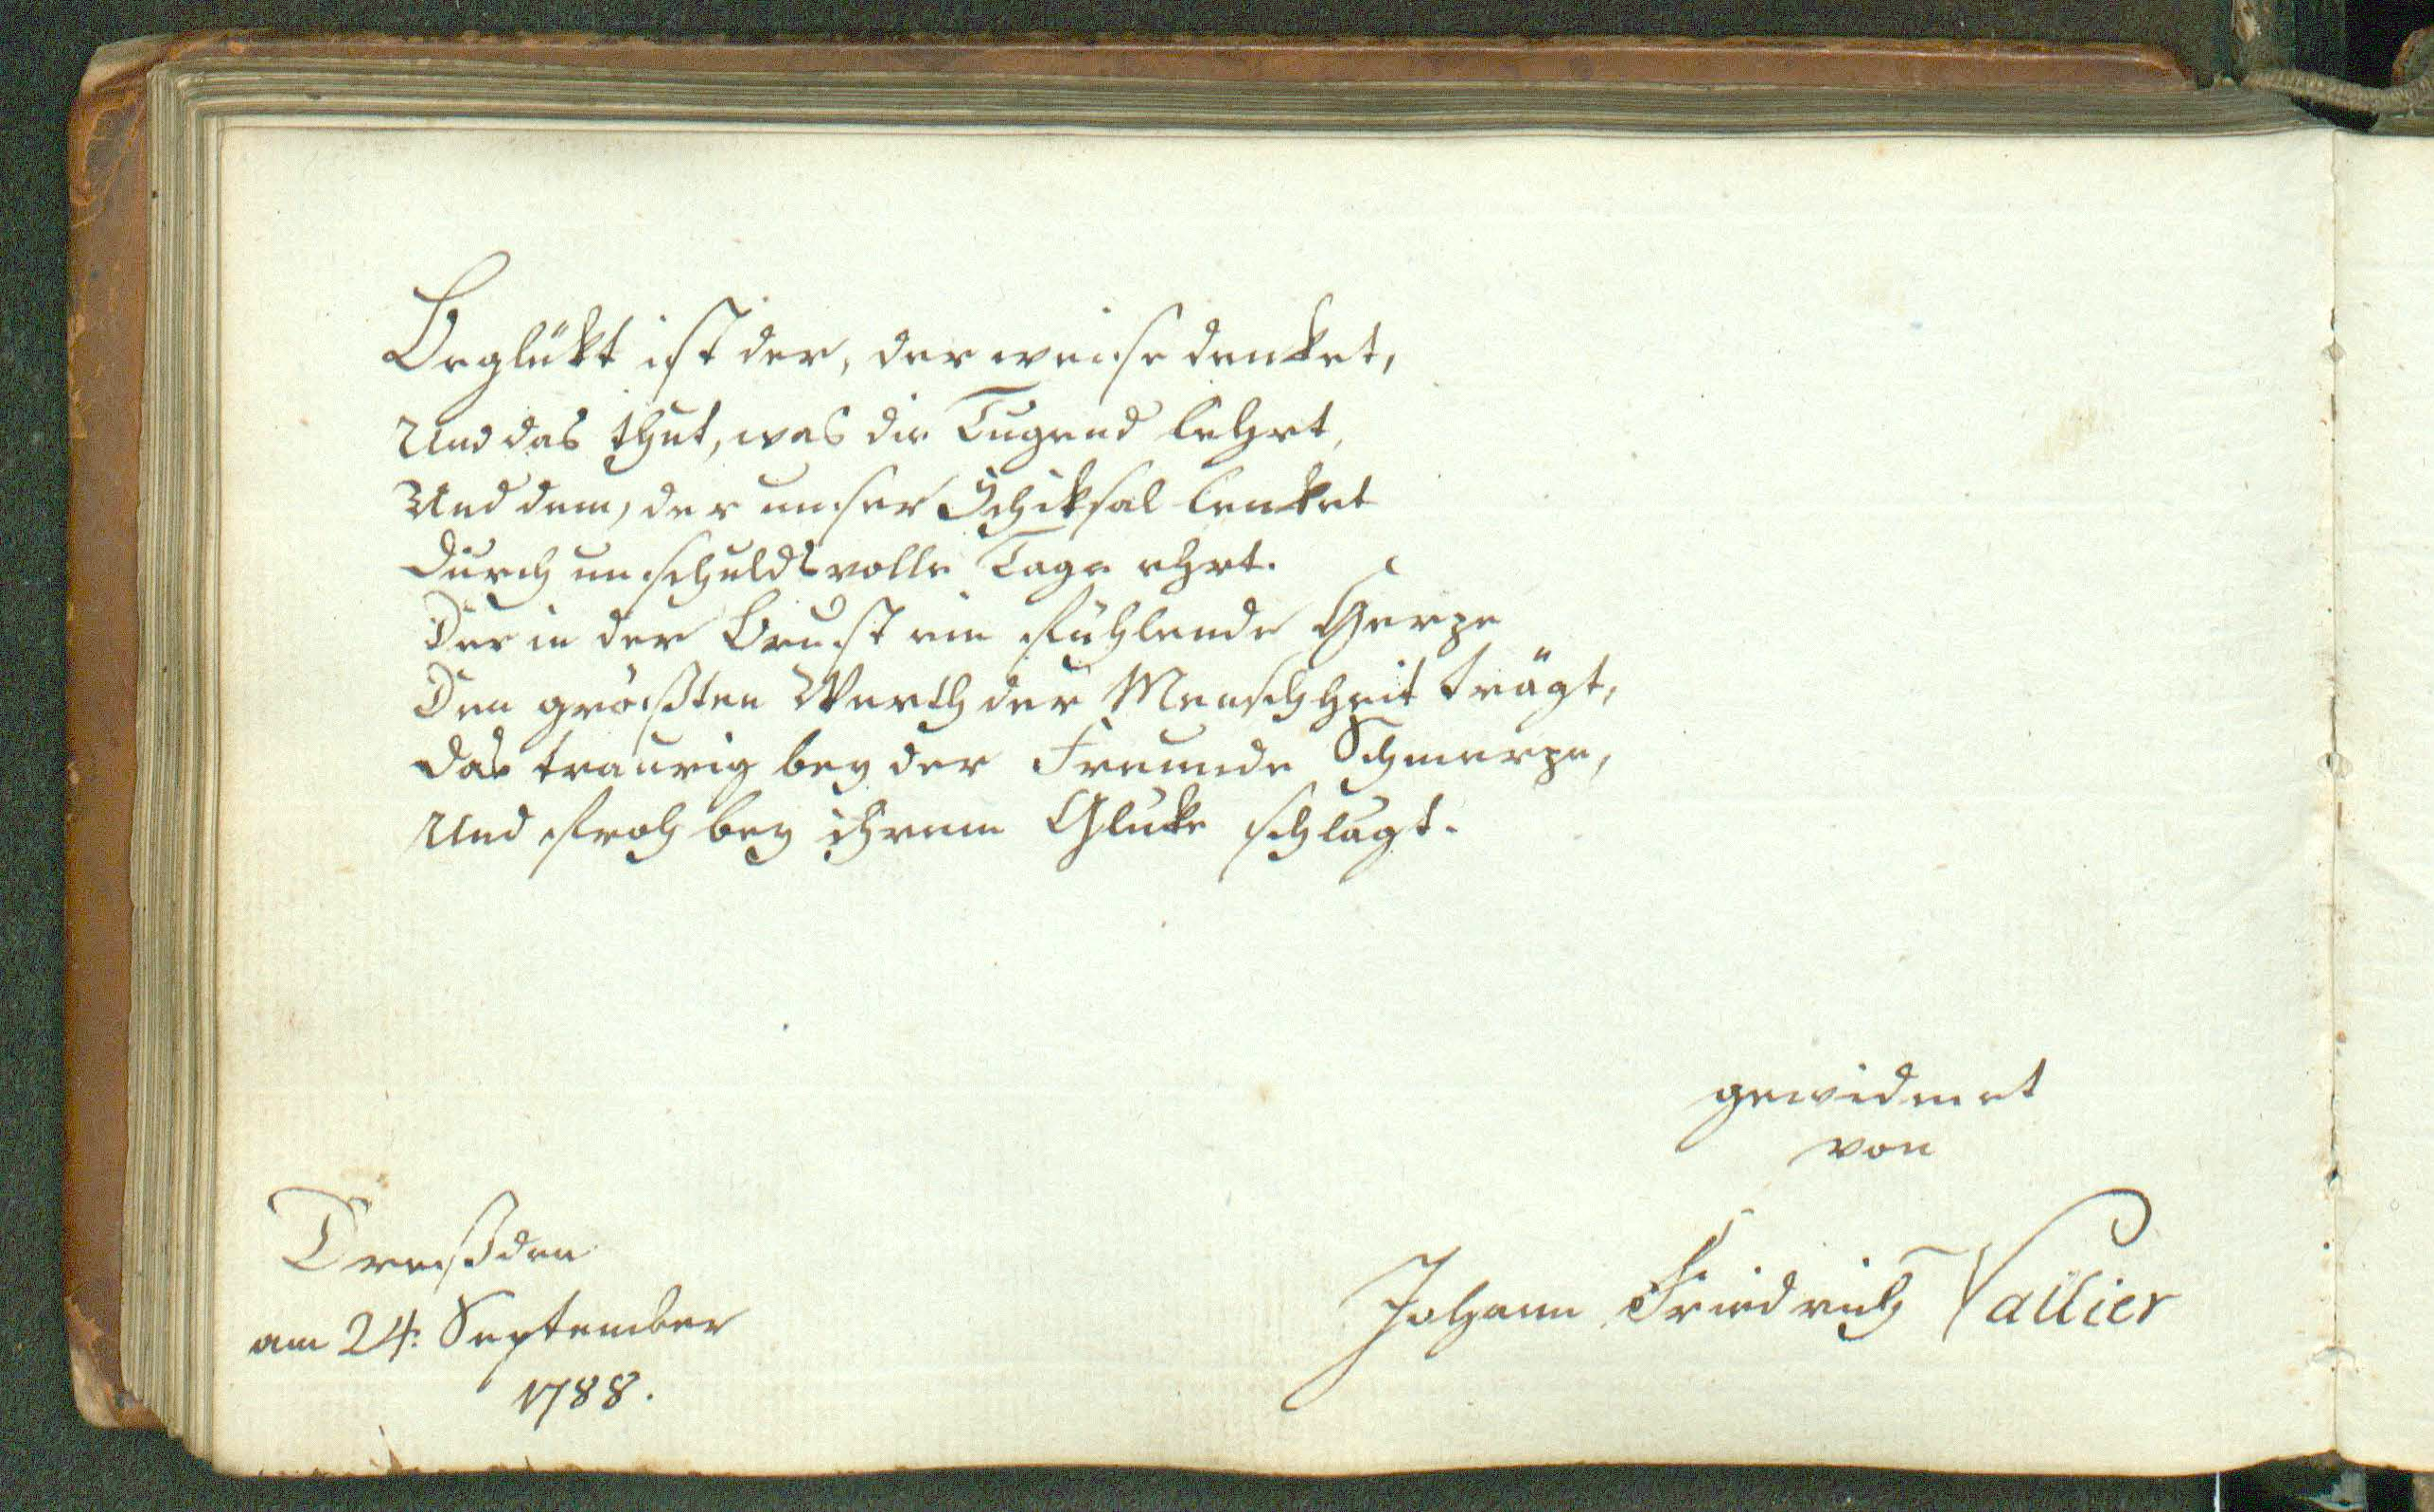 Beglükt ist der, der weise denket,
Und das thut, was die Tugend lehrt,
Und dem, der unser Schiksal lenket
Durch unschuldsvolle Tage ehrt.
Der in der Brust ein fühlende Herze
Den größten Werth der Menschheit trägt,
Das traurig bey der Freunde Schmerze,
Und froh bey ihrem Glüke schlagt.
gewidmet
von
Johann Friedrich Vallier
Dreßden
am 24. September
1788.